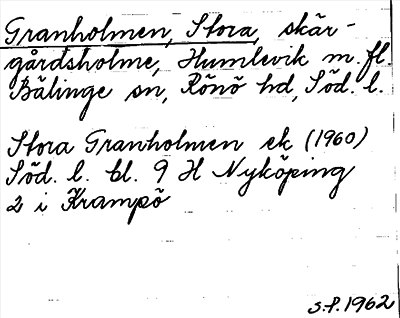 Granholmen, Stora, skär-
gårdsholme, Humlevik m. fl.
Bälinge sn, Rönö hd, Söd. l.
Stora Granholmen ek (1960)
Söd. l. bl. 9 H Nyköping
2 i Krampö
S.P. 1962